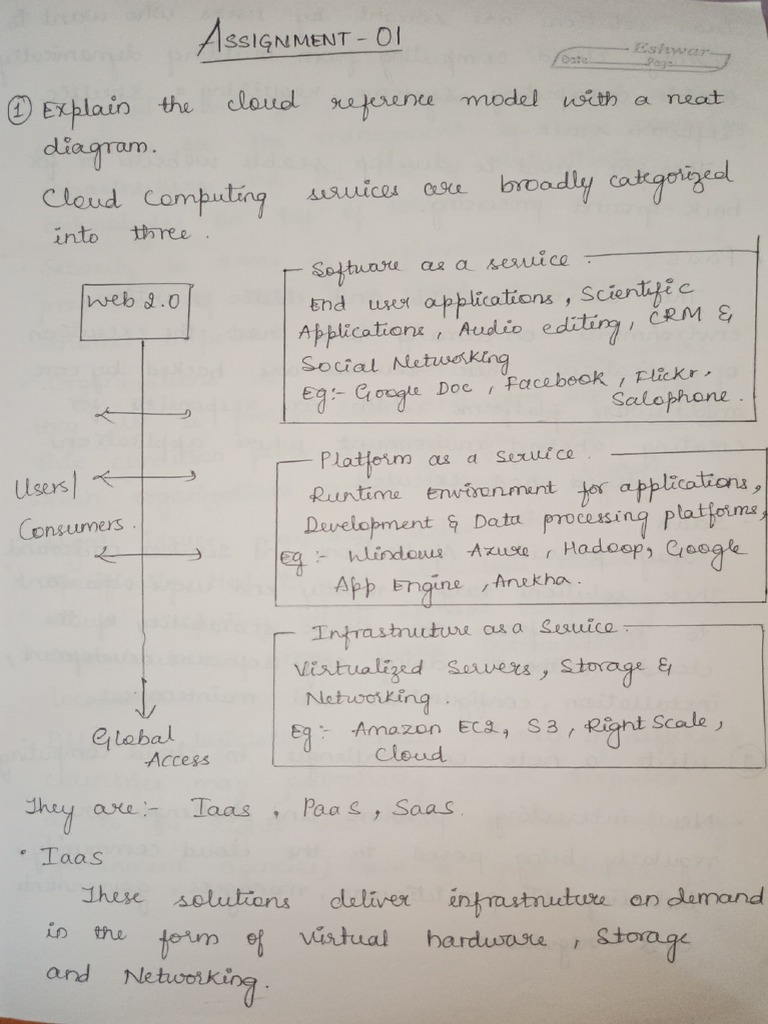 ASSIGNMENT - 01
Eshwar
Date Page
① Explain the cloud reference model with a neat
diagram.
Cloud Computing services are broadly categorized
into three.
Web 2.0
Users/
Consumers.
Global
Access
Software as a service
End user applications, Scientific
Applications, Audio editing, CRM &
Social Networking
Eg:- Google Doc, Facebook, Flickr,
Salophone.
Platform as a Service.
Runtime Environment for applications,
Development & Data processing platforms,
Eg :- Windows Axure, Hadoop, Google
App Engine, AneKha.
Infrastruture as a Service.
Virtualized Servers, Storage &
Networking.
Eg:- Amazon EC2, S3, Right Scale,
Cloud
They are:- Iaas, PaaS, SaaS.
• Iaas
These solutions deliver infrastruture on demand
in the form of virtual hardware, Storage
and Networking.